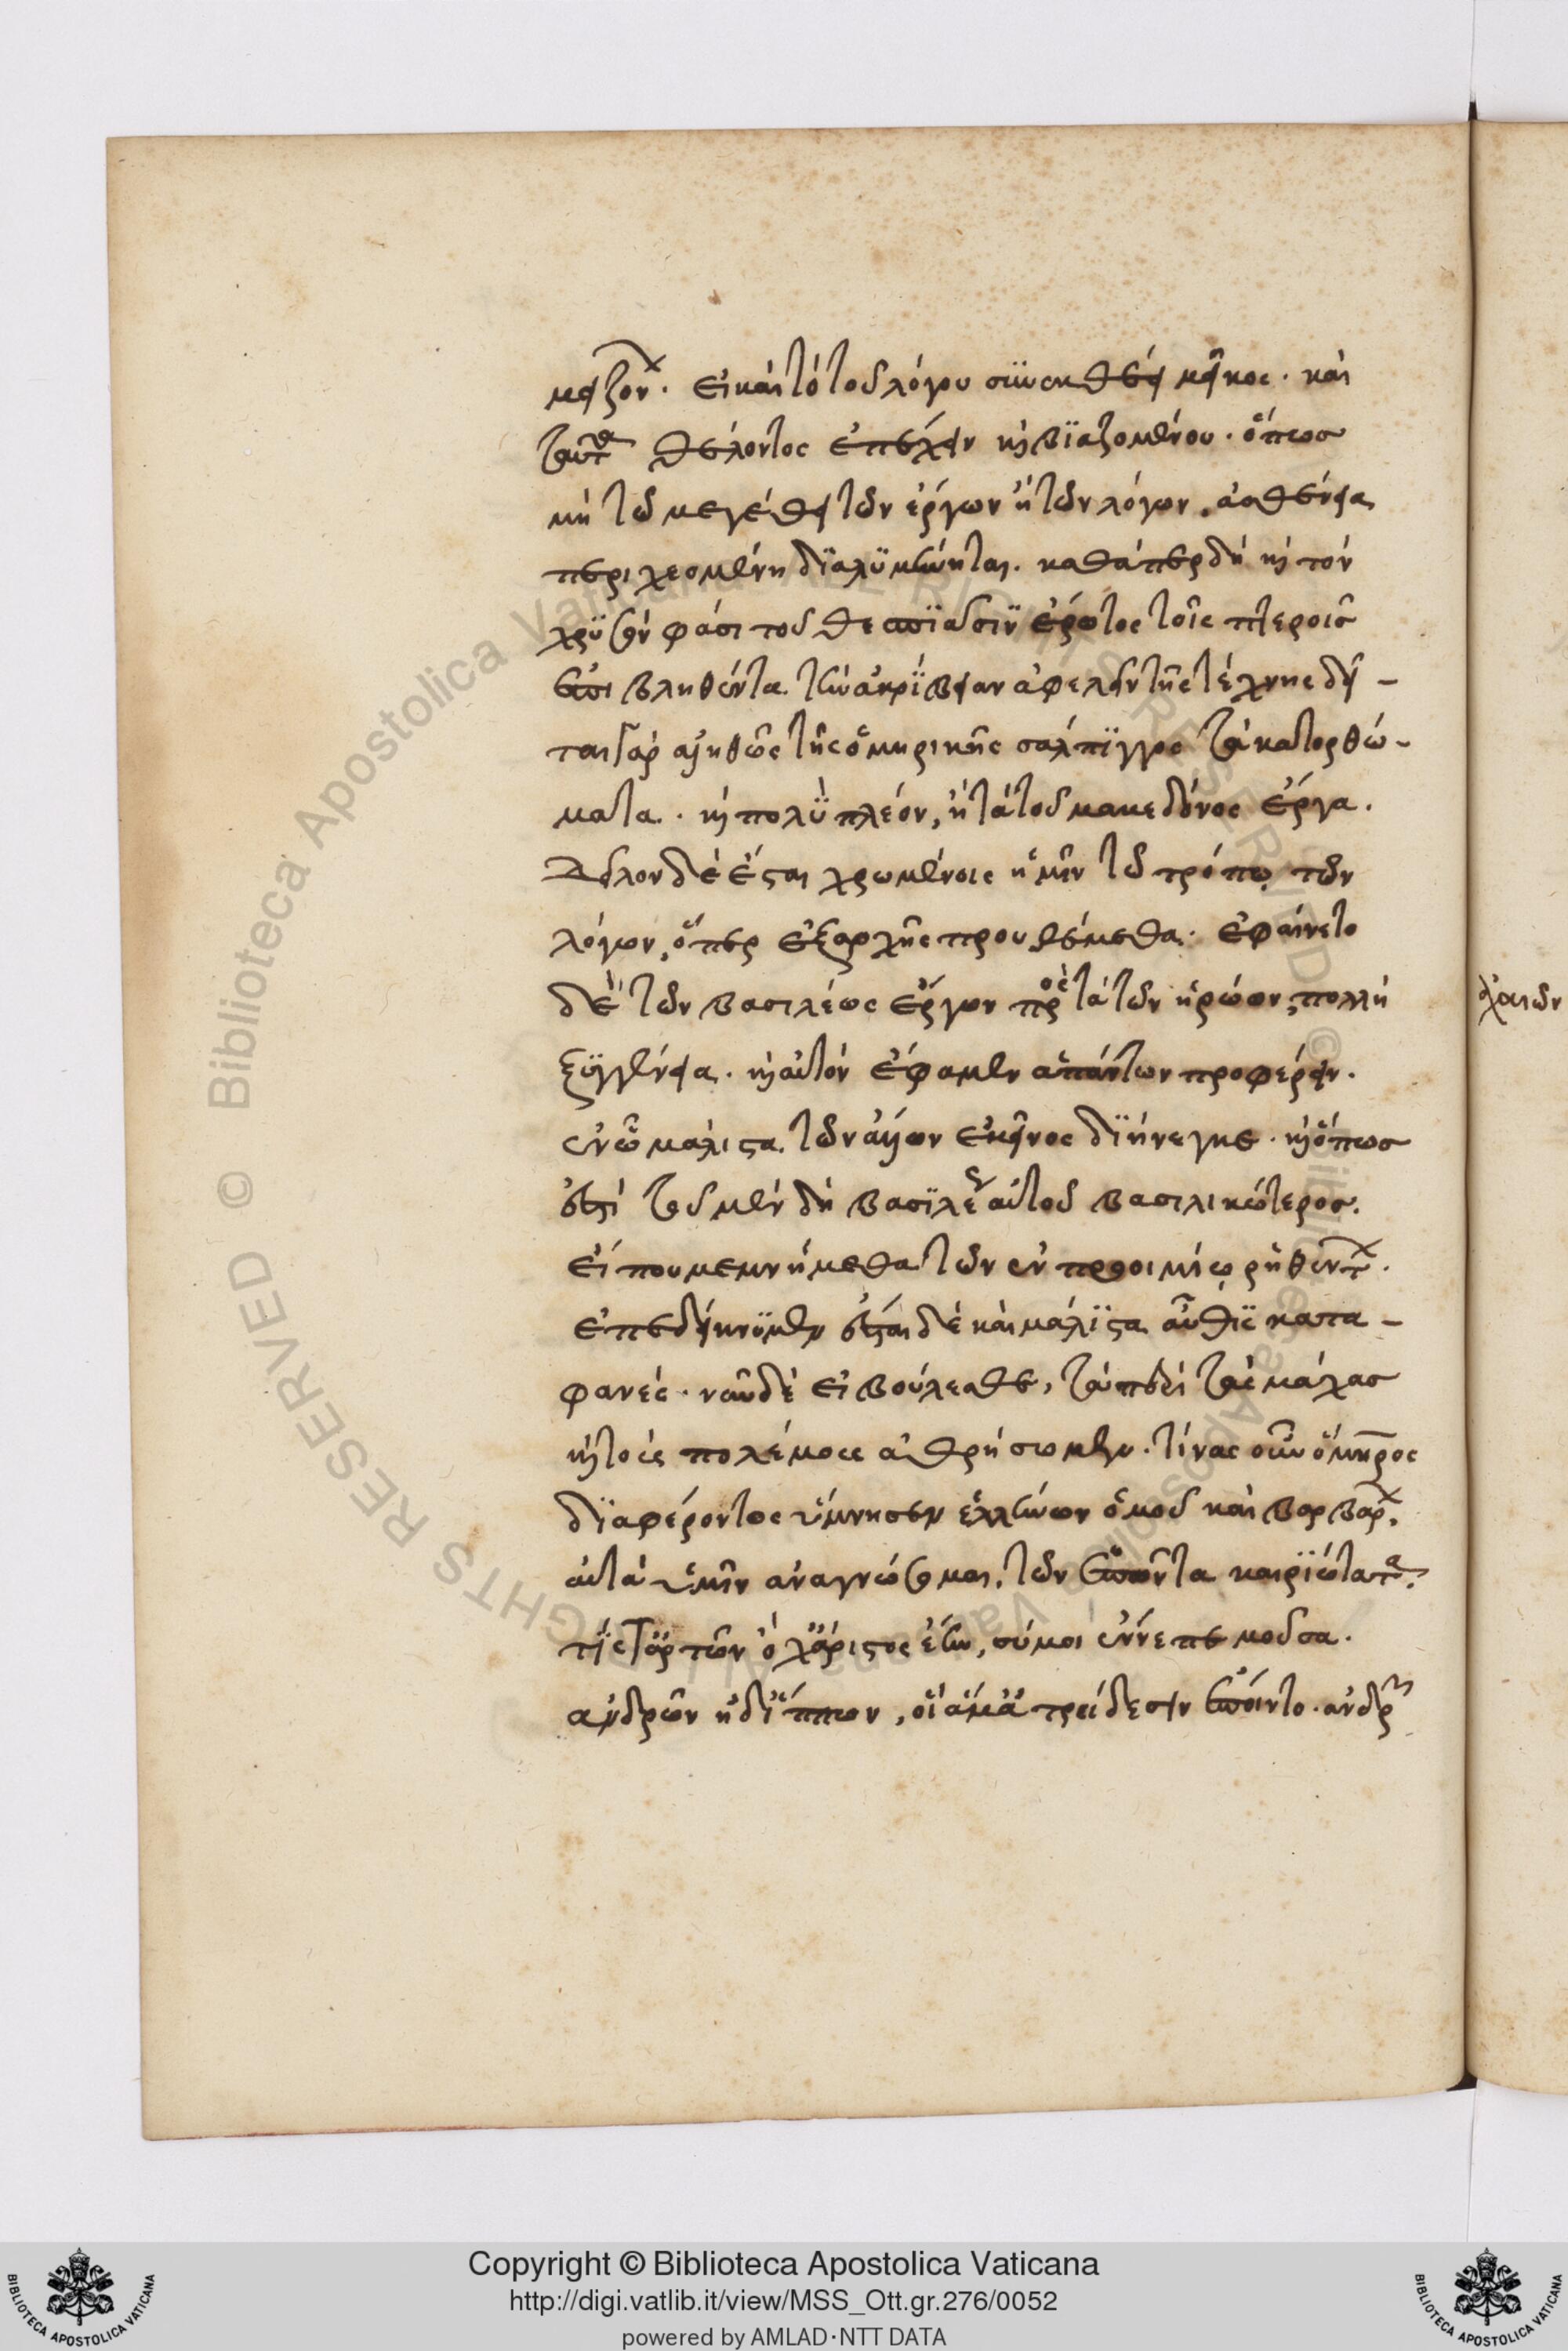 μείζον. εἰ καὶ τὸ τοῦ λόγου συνεκθέει μῆκος. καὶ
ταῦτα θέλοντος ἐπέχειν καὶ βϊαζομένου. ὅπως
μὴ τῶ μεγέθει τῶν ἔργων ἡ τῶν λόγων, ἀσθένεια
περιχεομένη διαλυμήνηται. καθάπερ δὴ καὶ τὸν
χρυσόν φάσι τοῦ θεσπιᾶσιν ἔρωτος τοῖς πτεροῖς
ἐπιβληθέντα τὴν ἀκρίβειαν ἀφελεῖν τῆς τέχνης δεῖ-
ται γὰρ ἀληθῶς τῆς ὁμηρικῆς σάλπιγγος τὰ κατορθώ-
ματα. καὶ πολὺ πλέον, ἢ τὰ τοῦ μακεδόνος ἔργα.
Δῆλον δὲ ἔσται χρωμένοις ἡμῖν τῶ τρόπῳ τῶν
λόγων, ὅπερ ἐξαρχῆς προυθέμεθα. ἐφαίνετο
δὲ τῶν βασιλέως ἔργων πρὸς τὰ τῶν ἡρώων, πολλὴ
ξυγγένεια. καὶ αὐτὸν ἔφαμεν ἁπάντων προφέρειν.
ἐν ᾧ μάλιστα τῶν ἄλλων ἐκεῖνος διήνεγκε. καὶ ὅπως
ἐστὶ τοῦ μὲν δὴ βασιλέως αὐτοῦ βασιλικώτερος.
εἴ που μεμνήμεθα τῶν ἐν προοιμίῳ ῥηθέντων.
ἐπεδείκνυμεν ἔσται δὲ καὶ μάλιστα αὖθις κατα-
φανές. νῦν δὲ εἰ βούλεσθε, τὰ περὶ τὰς μάχας
καὶ τοὺς πολέμους ἀθρήσωμεν. τίνας οὖν ὅμηρος
διαφέροντως ὕμνησεν ἑλλήνων ὁμοῦ καὶ βαρβάρων.
αὐτὰ ὑμῖν ἀναγνώσομαι. τῶν ἐπῶν τὰ καιριώτατα.
τίς τ' ἂρ τῶν ὄχ' ἄριστος ἔην, σύ μοι ἔννεπε μοῦσα.
ἀνδρῶν ἠδ' ἵππων, οἳ ἅμ' ἀτρείδεσιν ἕποιντο. ἀνδρῶν